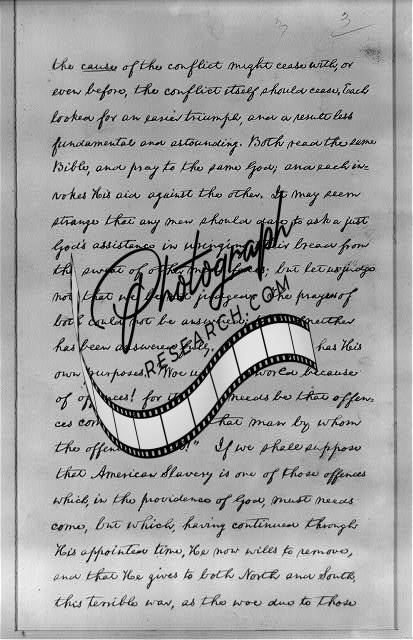 3
the cause of the conflict might cease with, or
even before, the conflict itself should cease. Each
looked for an easier triumph, and a result less
fundamental and astounding. Both read the same
Bible, and pray to the same God; and each in-
vokes His aid against the other. It may seem
strange that any men should dare to ask a just
God's assistance in wringing their bread from
the sweat of other men's faces; but let us judge
not that we be not judged. The prayers of
both could not be answered; neither
has been answered has His
own purposes. "Woe world because
of offences! for needs be that offen-
ces that man by whom
the If we shall suppose
that American Slavery is one of those offences
which, in the providence of God, must needs
come, but which, having continued through
His appointed time, He now wills to remove,
and that He gives to both North and South,
this terrible war, as the woe due to those
Photograph
RESEARCH.COM